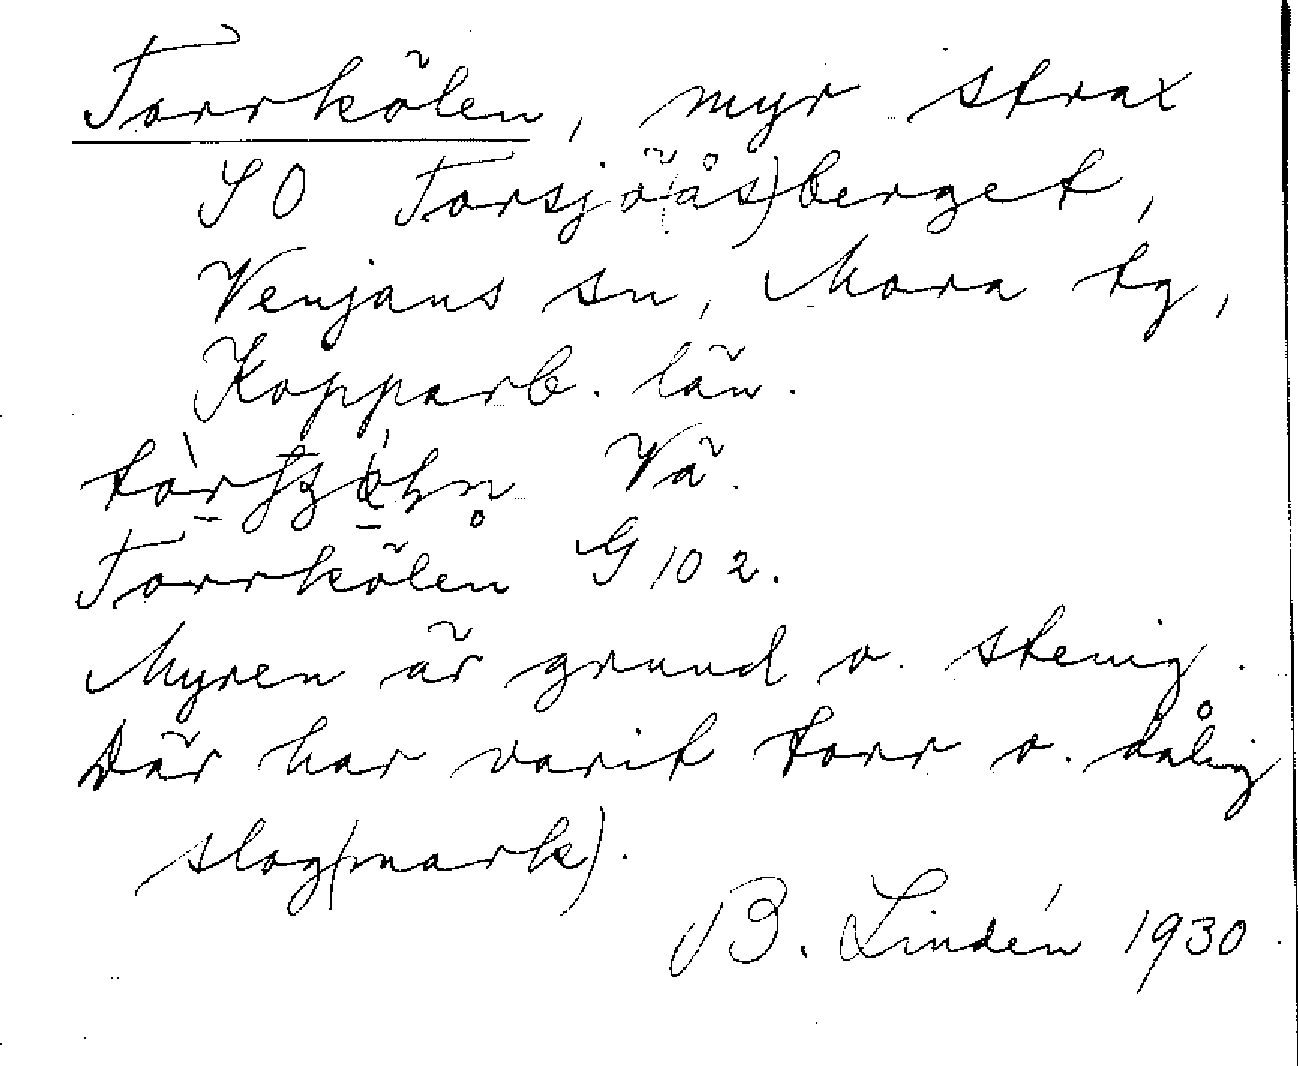 Torrkölen, myr strax
SO Torsjö(ås)berget,
Venjans sn, Mora tg,
Kopparb. län.
Vä.
Torrkölen G 102.
Myren är grund o. stenig.
Där har varit torr o. dålig
slog(mark).
B. Lindén 1930.